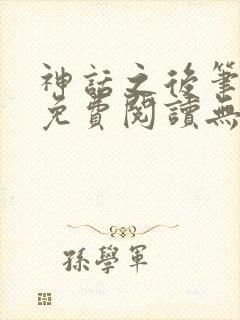 神話之後筆
免費閱讀無
孫學軍